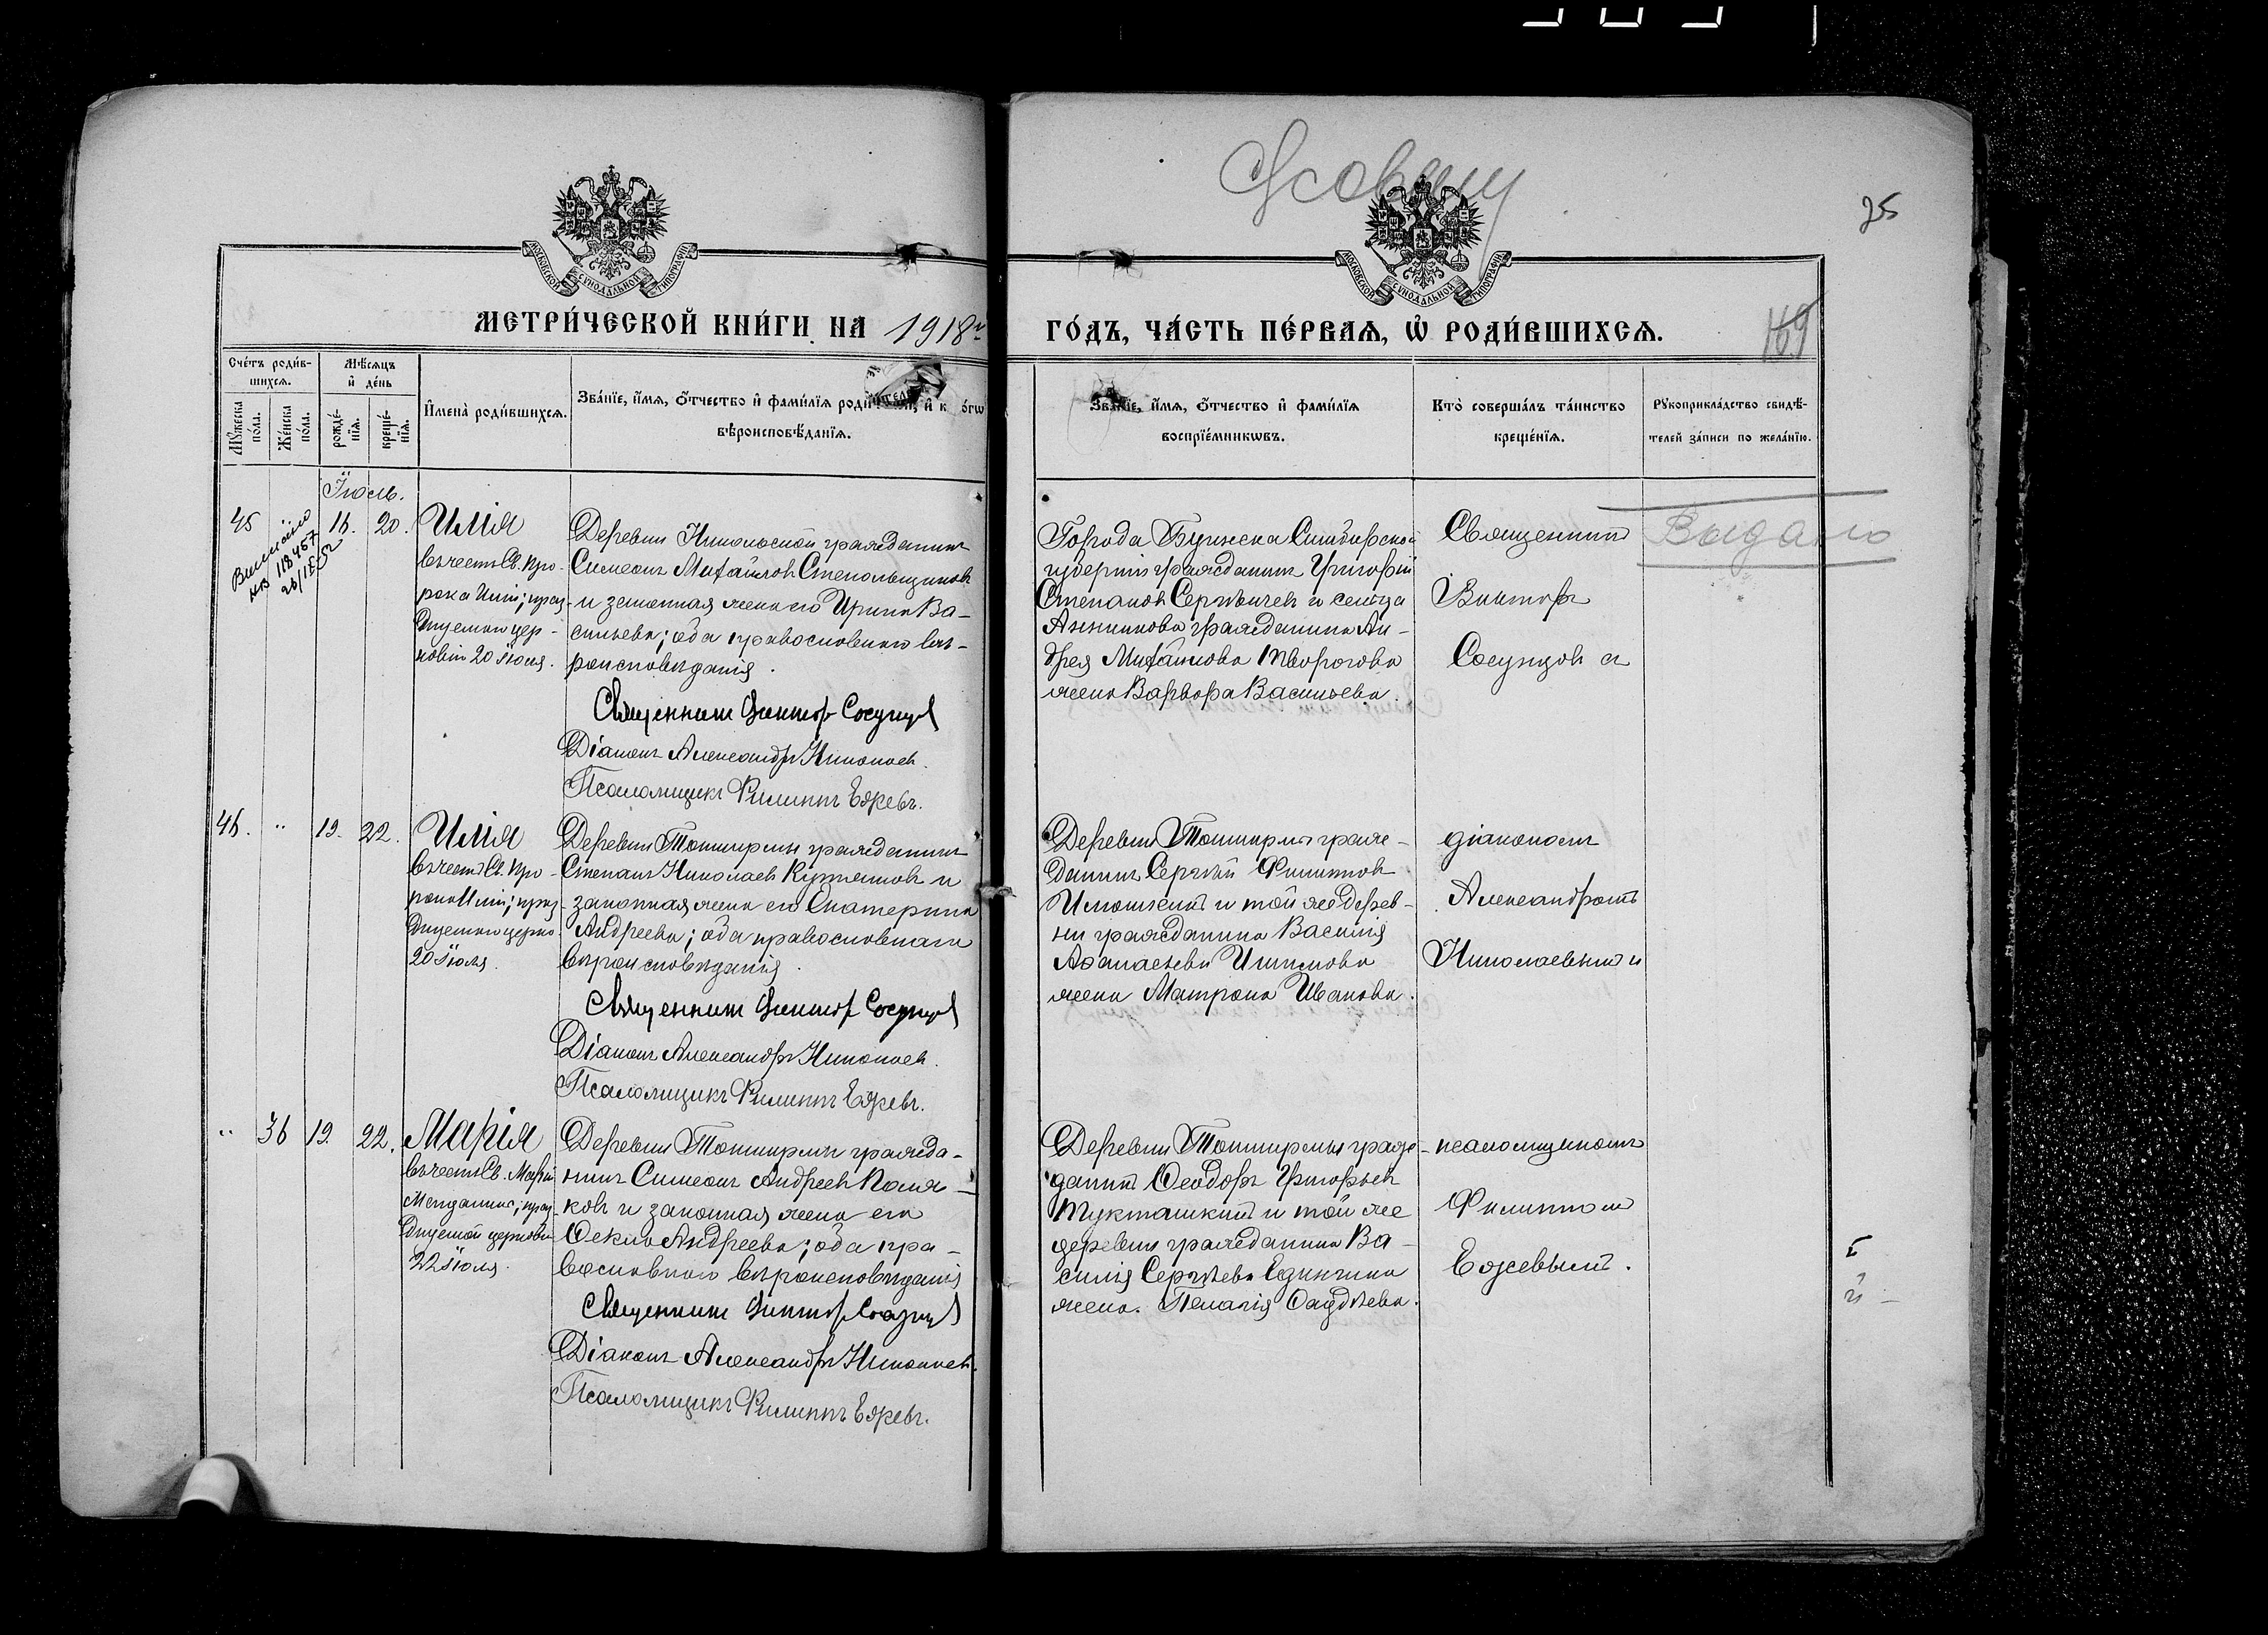 25
МОСКОВСКОЙ СѴНОДАЛЬНОЙ ТИПОГРАФІИ
МОСКОВСКОЙ СѴНОДАЛЬНОЙ ТИПОГРАФІИ
МЕТРИ́ЧЕСКОЙ КНИ́ГИ НА 1918 г.
ГО́ДЪ, ЧА́СТЬ ПЕ́РВАЯ, Ѡ РОДИ́ВШИХСЯ.
169
Сче́тъ роди́в-
шихся.
Мѣ́сяцъ
и҆ де́нь
Мꙋ́жеска по́ла.
Же́нска по́ла.
рожде́-
нїя.
креще́-
нїя.
И҆мена̀ роди́вшихся.
Зва́нїе, и҆́мя, ѻ҆́тчество и҆ фами́лїя роди́телей, и҆ како́гѡ
вѣроисповѣ́данїя.
Зва́нїе, и҆́мя, ѻ҆́тчество и҆ фами́лїя
воспрїе́мникѡвъ.
Кто̀ соверша́лъ та́инство
креще́нїя.
Рꙋкоприкла́дство свидѣ́-
телей за́писи по жела́нїю.
Іюль.
45
16. 20.
118457
Илія
въ честь Св. Про-
рока Иліи; праз-
днуемаго цер-
ковію 20 Іюля.
Деревни Никольской гражданинъ
Симеонъ Михайловъ Стекольщиковъ
и законная жена его Ирина Ва-
сильева; оба православнаго вѣ-
роисповѣданія.
Священникъ Викторъ Сосунцов
Діаконъ Александръ Николаевъ.
Псаломщикъ Филиппъ Ежевъ.
Города Буинска Симбирской
губерніи гражданинъ Григорій
Степановъ Сергѣичевъ и сельца
гражданина Ан-
дрея Михайлова Творогова
жена Варвара Васильева.
Священникъ
Викторъ
Сосунцовъ съ
Выдано
46. " 19. 22.
Илія
въ честь Св. Про-
рока Иліи; праз-
днуемаго церко-
20 Іюля.
Деревни Тошкирмы гражданинъ
Степанъ Николаевъ и
законная жена его Екатерина
Андреева; оба православнаго
вѣроисповѣданія.
Священникъ Викторъ Сосунцов
Діаконъ Александръ Николаевъ.
Псаломщикъ Филиппъ Ежевъ.
Деревни Тошкирмы граж-
данинъ Сергѣй Филипповъ
и той же дерев-
ни гражданина Василія
Аѳанасьева
жена Матрона Иванова.
діакономъ
Александромъ
Николаевымъ и
" 36 19. 22.
Марія
въ честь Св. Маріи
Магдалины; праз-
днуемой церковію
22 Іюля.
Деревни Тошкирмы гражда-
нинъ Симеонъ Андреевъ Поля-
ковъ и законная жена его
Ѳекла Андреева; оба пра-
вославнаго вѣроисповѣданія
Священникъ Викторъ Сосунцов
Діаконъ Александръ Николаевъ.
Псаломщикъ Филиппъ Ежевъ.
Деревни Тошкирмы граж-
данинъ Ѳеодоръ Григорьевъ
и той же
деревни гражданина Ва-
силія Сергѣева
жена Пелагія Ѳаддѣева.
псаломщикомъ
Филиппомъ
Ежевымъ.